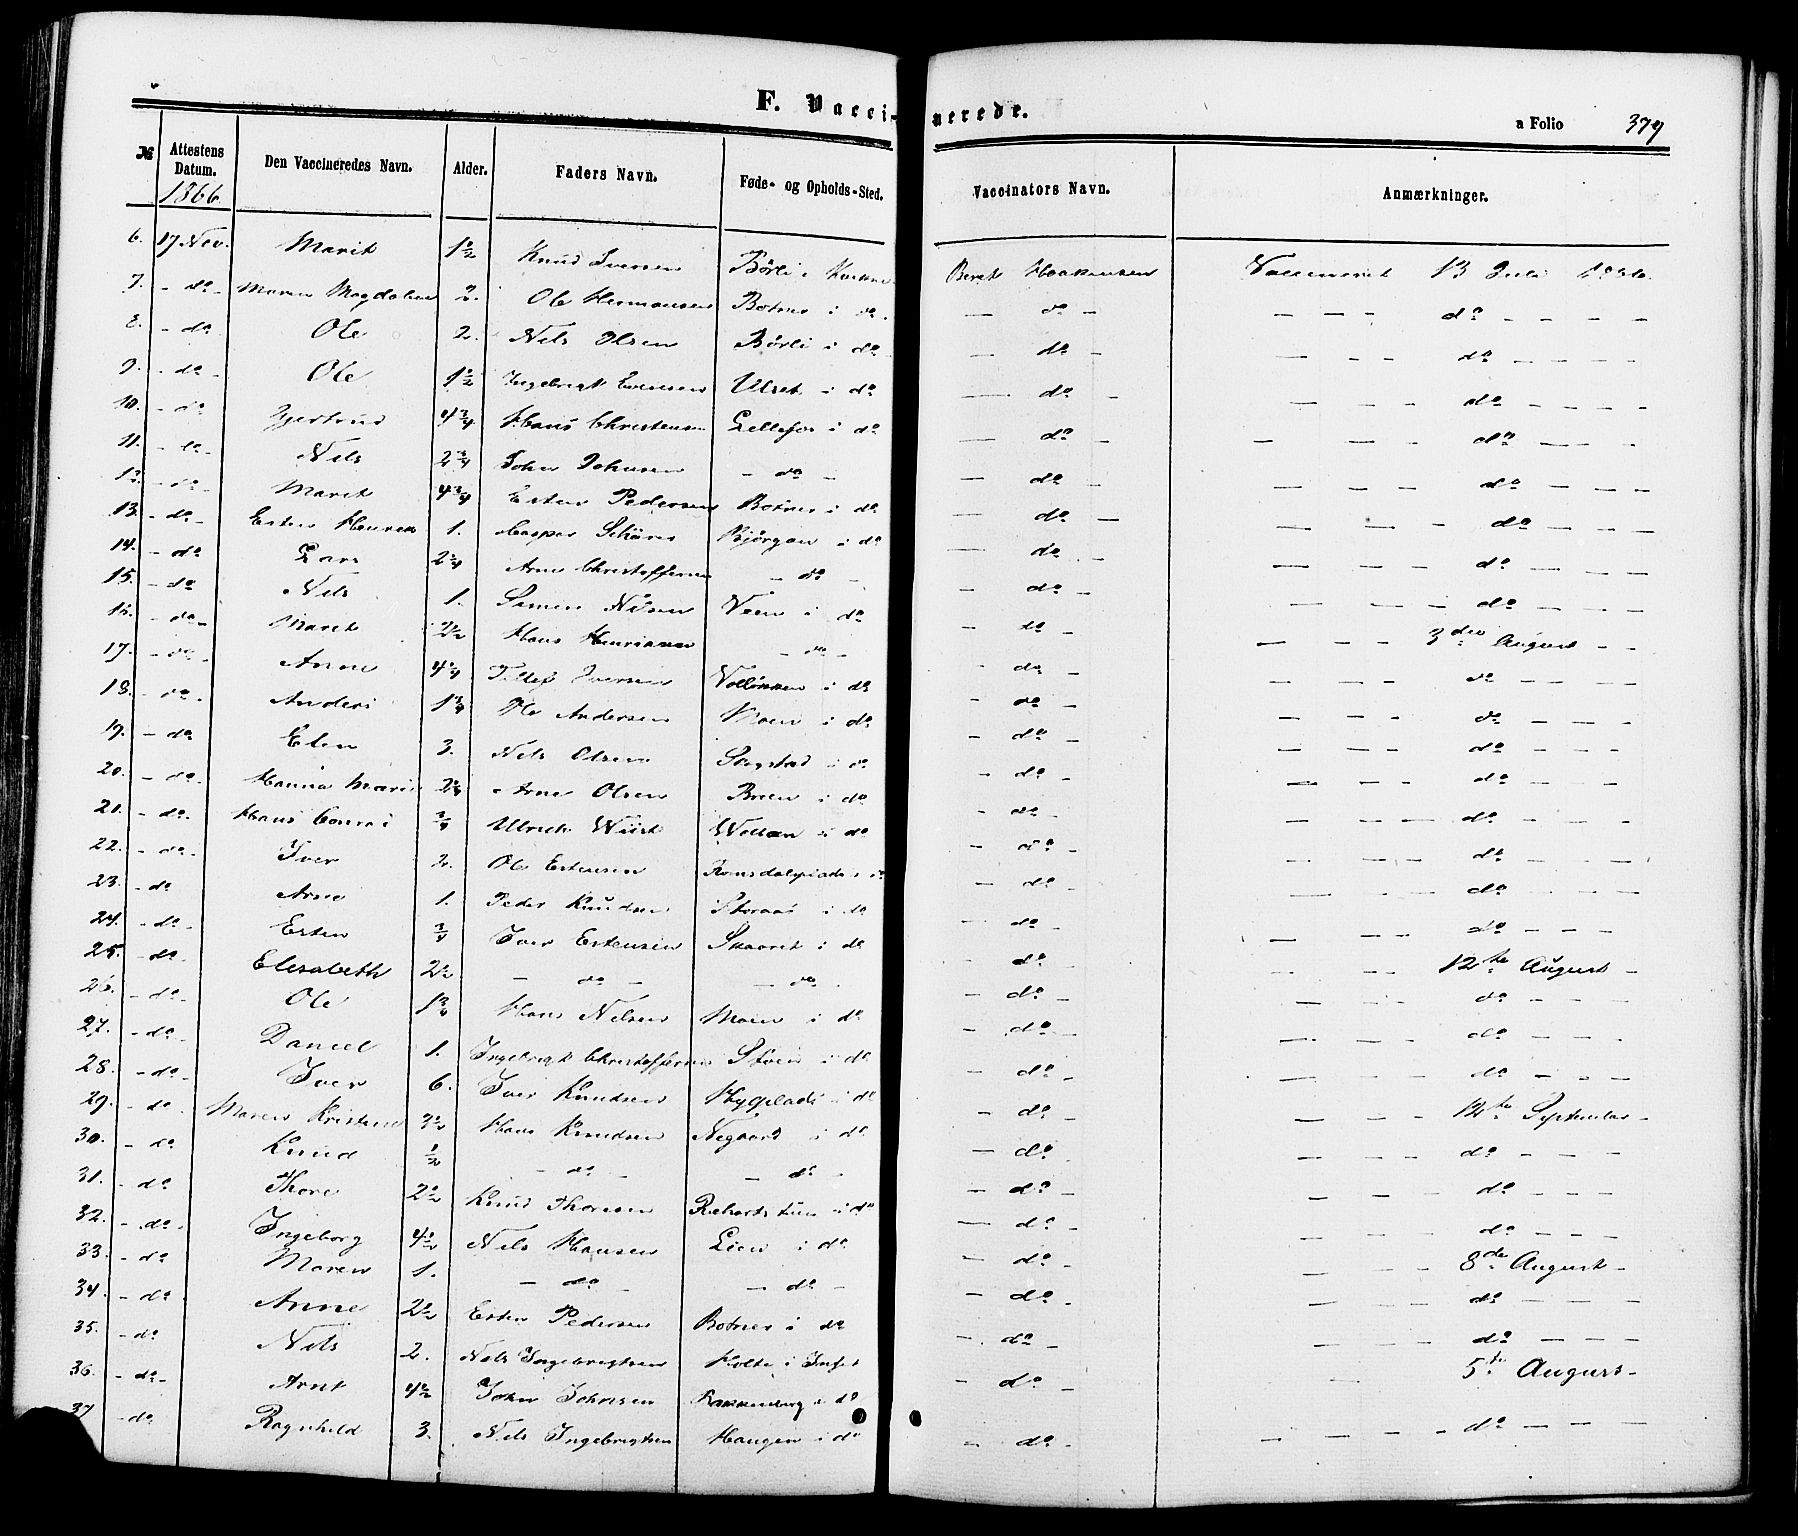 F. Vaccinerede.
a Folio 379
№ Attestens Datum. Den Vaccineredes Navn. Alder. Faders Navn. Føde- og Opholds-Sted. Vaccinators Navn. Anmærkninger.
1866.
6. 17 Nov. Marit 1½ Knud Iversen Børli i Berit Haakensen Vaccineret 13 Juli 1866.
7. - do - Maren Magdalene 2. Ole Hermansen Botner i do. — do — — — — do — — — —
8. - do Ole 2. Nils Olsen Børli i do — do - — — — do — — — —
9. - do - Ole 1½ Ingebrigt Evensen Ulset i do — do - — — - do — — — —
10. - do Gjertrud 4¾ Hans Christensen Lillefos i do — do - — — - do — — —
11. - do Nils 2¾ John Johnsen - do - - do - — — — do — — —
12. - do - Marit 4¾ Esten Pedersen Botner i do — do — — — - do — — —
13. - do - Esten Henrik 1. Casper Schärer Bjørgan i do — do - — — — do — — —
14. - do Lars Arne Christoffersen - do - - do - — — — do — — —
15. - do Nils 1. Simen Nilsen Veen i do - do - — — 3die August - -
16. - do - Marit Hans Henriksen - do - - do - — — — do — — —
17. - do - Anne Tillef Iversen i do - do - — — - do — — —
18. - do - Anders 1¾ Ole Andersen Moen i do - do - — — — do — — —
19. - do Elen 3. Nils Olsen Stegstad i do - do - — — - do — — —
20. - do Hanna Marie Arne Olsen Breen i do - do - — — — do — — —
21. - do. Hans Conrad ¾ Ulrich Wiist Wollan i do - do - — — - do — — —
22. - do - Iver 2. Ole Estensen Romsdalsplads i do - do - — — - do — — —
23. - do Arne 1. Peder Knudsen Storaas i do - do - — — do — — —
24. - do - Esten ¾ Iver Estensen Skaaret i do - do - — - 12te August -
25. - do - Elisabeth - do - - do - - do - — — - do — — —
26. - do Ole Hans Nilsen Moen i do - do - — — - do — — —
27. - do - Daniel 1. Ingebrigt Christoffersen Støen i do - do - — — — do — — —
28. - do - Iver 6. Iver Knudsen Hygplads i do - do - — — - 12te September -
29. - do - Maren Kristine Hans Knudsen Negaard i do - do. — — — do — — —
30. - do Knud ½ - do - - do - - do - — — — do — — —
31. - do Thore Knud Thoresen i do - do - — — do — — —
32. - do - Ingeborg Nils Hansen Lien i do - do - — - 8de August -
33. - do Maren 1. - do - do - - do - — — do — — —
34. - do Anne Esten Pedersen Botner i do - do - — — - do — — —
35. - do Nils 2. Nils Ingebrigtsen Holte i Inset - do - — 5te August -
36. - do - Arnt John Johnsen i do
37 - do Ragnhild 3. Nils Ingebrigtsen Haugen i do - do - — — — - do — — —